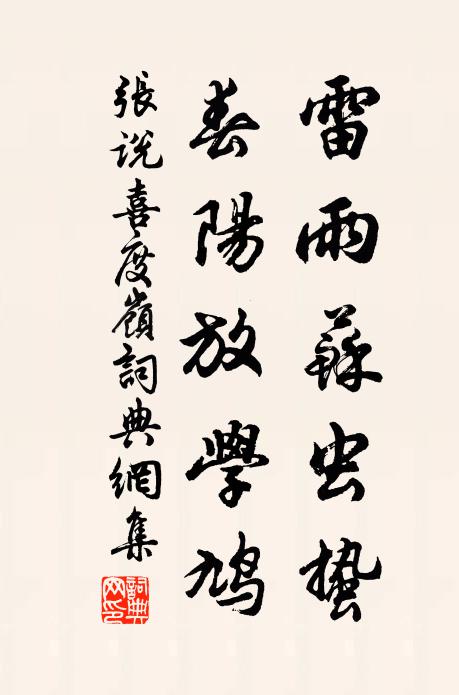 雷雨蘇虫蟄
春陽放學鳩
張説喜度嶺詞典網集
詞典網印